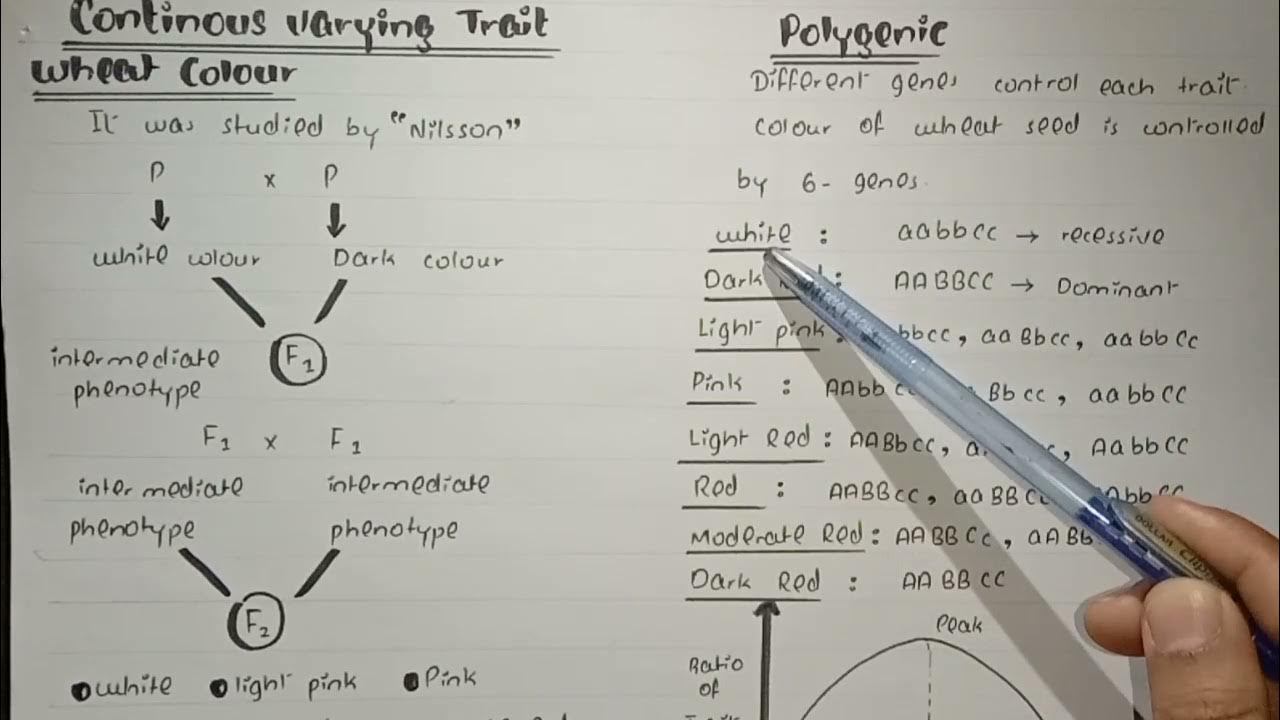 Continous Varying Trait
Wheat Colour
It was studied by "Nilsson"
P x P
White colour Dark colour
F1
intermediate
phenotype
F1 x F1
intermediate intermediate
phenotype phenotype
F2
white light pink Pink
Polygenic
Different genes control each trait.
Colour of wheat seed is controlled
by 6- genes.
White : aabbcc → recessive
Dark : AABBCC → Dominant
Light pink : bbcc, aaBbcc, aabbCc
Pink : AAbb Bbcc, aabbCC
Light Red : AABbcc, AabbCC
Red : AABBcc, aaBBC
Moderate Red : AABBCc, aABb
Dark Red : AABBCC
Peak
Ratio
of